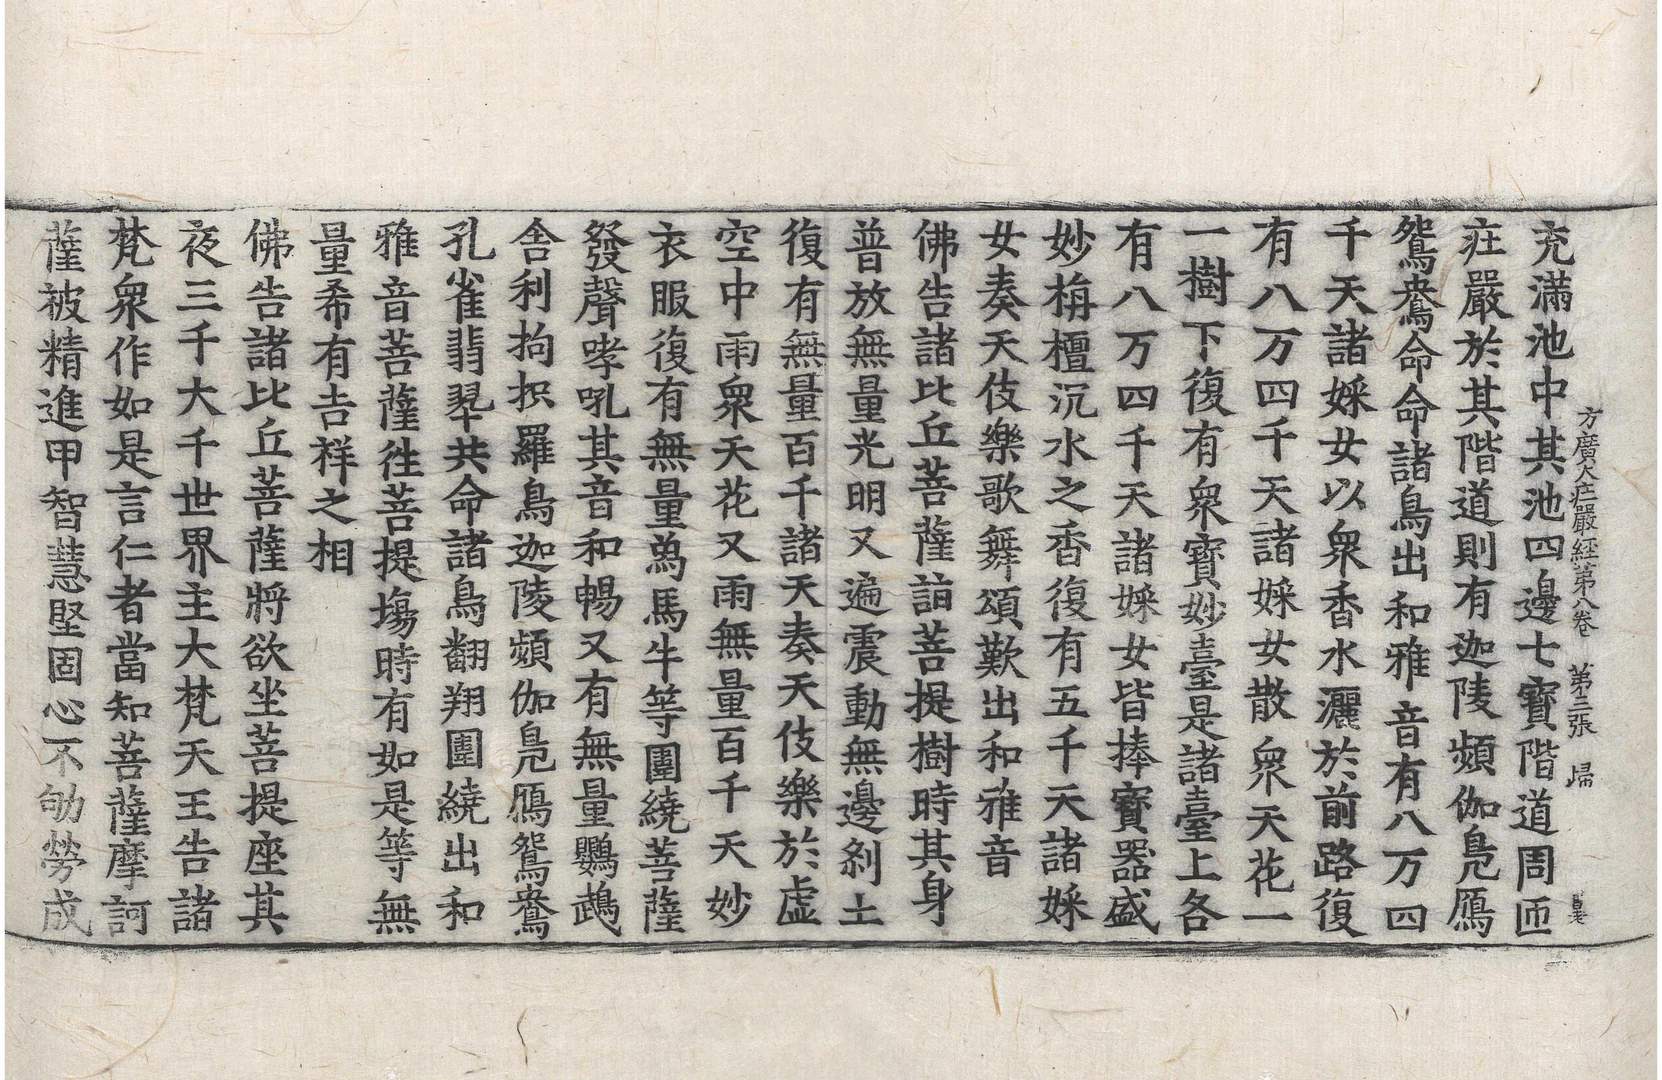 方廣大疘嚴經第八卷 第三張 歸
充滿池中其池四邊七寶階道周匝
疘嚴於其階道則有迦陵頻伽鳧鴈
鴛鴦命命諸鳥出和雅音有八万四
千天諸婇女以衆香水灑於前路復
有八万四千天諸婇女散衆天花一
一樹下復有衆寶妙臺是諸臺上各
有八万四千天諸婇女皆捧寶器盛
妙栴檀沉水之香復有五千天諸婇
女奏天伎樂歌舞頌歎出和雅音
佛告諸比丘菩薩詣菩提樹時其身
普放無量光明又遍震動無邊刹土
復有無量百千諸天奏天伎樂於虛
空中雨衆天花又雨無量百千天妙
衣服復有無量爲馬牛等圍繞菩薩
發聲哮吼其音和暢又有無量鸚鵡
舍利拘抧羅鳥迦陵頻伽鳧鴈鴛鴦
孔雀翡翠共命諸鳥翻翔圍繞出和
雅音菩薩徃菩提場時有如是等無
量希有吉祥之相
佛告諸比丘菩薩將欲坐菩提座其
夜三千大千世界主大梵天王告諸
梵衆作如是言仁者當知菩薩摩訶
薩被精進甲智慧堅固心不劬勞成